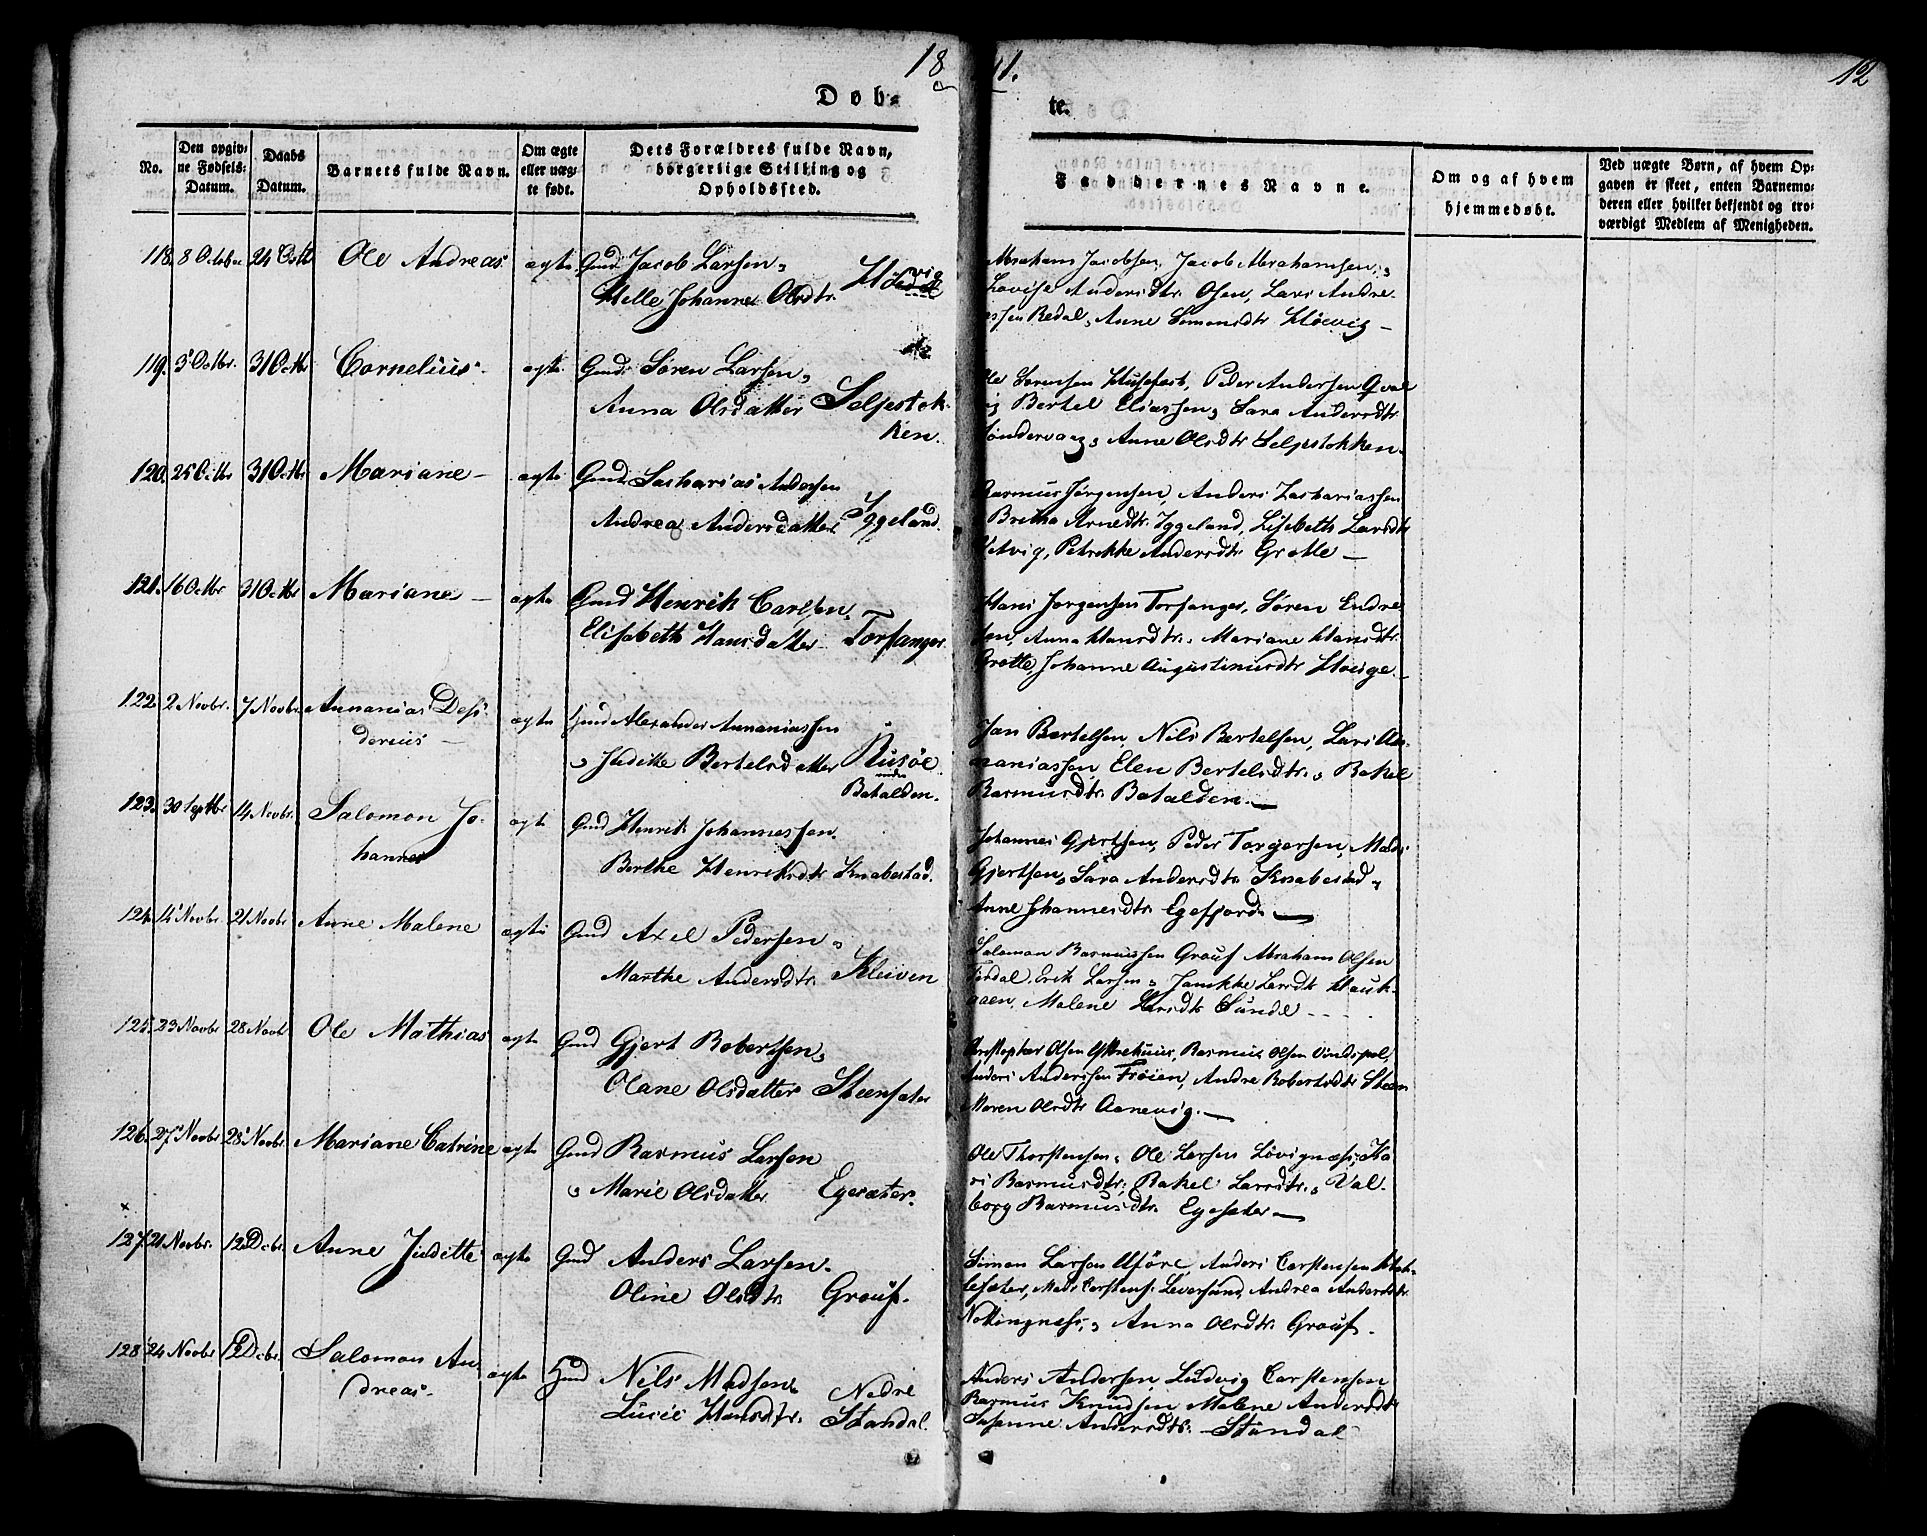 18
41.
12
Døb-
te.
No.
Den opgiv-
ne Fødsels-
Datum.
Daabs
Datum.
Barnets fulde Navn.
Om ægte
eller uæg-
te født.
Dets Forældres fulde Navn,
borgerlige Stilling og
Opholdssted.
Faddernes Navne.
Om og af hvem
hjemmedøbt.
Ved uægte Børn, af hvem Op-
gaven er skeet, enten Barnemo-
deren eller hvilket bekjendt og tro-
værdigt Medlem af Menigheden.
118. 8 October 24 Octbr Ole Andreas ægte Gmd Jacob Larsen
Helle Johanne Olsdtr.
Abraham Jacobsen, Jacob Abrahamsen,
Lovise Andersdtr Osen, Lars Andre-
assen Redal, Anne Simonsdtr Høevig
119. 3 Octbr. 31 Octbr Cornelius ægte Gmd Søren Larsen
Anna Olsdatter Seljestok-
ken.
Ole Sørensen Husefest, Peder Andersen
Bertel Eliassen, Sara Andersdtr
Søndervaag, Anne Olsdtr Seljestokken.
120. 25 Octbr 31 Octbr Mariane ægte Gmd Sacharias Andersen
Andrea Andersdatter Iggeland.
Rasmus Jørgensen, Anders Zachariassen
Brethe Arnedtr Iggeland, Lisebeth Larsdtr
Petrikke Andersdtr Grotle
121. 16 Octbr 31 Octbr Mariane ægte Gmd Henrik Carlsen
Elisabeth Hansdatter Torfanger
Hans Jørgensen Torfanger, Søren Endre-
sen, Anna Hansdtr, Mariane Hansdtr
Grotle, Johanne Augustinusdtr Houge
122. 2 Novbr. 7 Novbr. Annanias Desi-
derius ægte Gmd Alexander Annaniassen
Juditte Bertelsdatter Rusøe
under
Batalden.
Jan Bertelsen, Nils Bertelsen, Lars An-
naniassen, Elen Bertelsdtr, Rakel
Rasmusdtr Batalden
123. 30 Septbr 14 Novbr. Salomon Jo-
hannes ægte Gmd Henrik Johannessen
Berthe Henriksdtr Knabestad.
Johannes Gjertsen, Peder Torgersen, Mads
Gjertsen, Sara Andersdtr Knabestad
Anne Johannesdtr Egefjord
124. 14 Novbr 21 Novbr Anne Malene ægte Gmd Axel Pedersen
Marthe Andersdtr Kleiven
Salomon Rasmussen Grouf Abraham Olsen
Erik Larsen, Janikke Larsdtr Hauk-
aaen, Malene Larsdtr Sunde
125. 23 Novbr 28 Novbr Ole Mathias ægte Gmd Gjert Robertsen
Olane Olsdatter Steensæter
Christopher Olsen Ystrehuus, Rasmus Olsen Vindspol,
Anders Andersen Frøien, Andre Robertsdtr Steen
Maren Olsdtr Aanevig.
126. 27 Novbr 28 Novbr Mariane Catrine ægte Gmd Rasmus Larsen
Marie Olsdatter Egesæter.
Ole Thorstensen, Ole Larsen Løvignæs, Ka-
ri Rasmusdtr, Rakel Larsdtr, Val-
borg Rasmusdtr Egesæter
127. 21 Novbr. 12 Decbr. Anne Juditte ægte Gmd Anders Larsen
Oline Olsdtr. Grouf.
Simon Larsen Uføre, Anders Carstensen
Mads Carstens. Leversund, Andrea Andersdtr
Nottingnes, Anna Olsdtr Grouf.
128. 24 Novbr 12 Decbr. Salomon An-
dreas ægte Gmd Nils Madsen
Lusie Hansdtr. Nedre
Standal.
Anders Andersen Ludvig Carstensen
Rasmus Knudsen Malene Andersdtr
Susanne Andersdtr. Standal